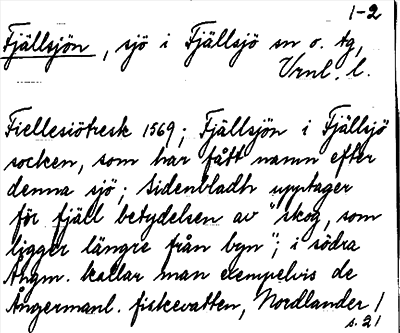 1-2
Fjällsjön, sjö i Fjällsjö sn o. tg,
Vrnl. l.
Fiellesiötresk 1569; Fjällsjön i Fjällsjö
socken, som har fått namn efter
denna sjö; Sidenbladh upptager
för fjäll betydelsen av "skog, som
ligger längre från byn"; i södra
Ångm. kallar man exempelvis de
Ångermanl. fiskevatten, Nordlander /
s. 21